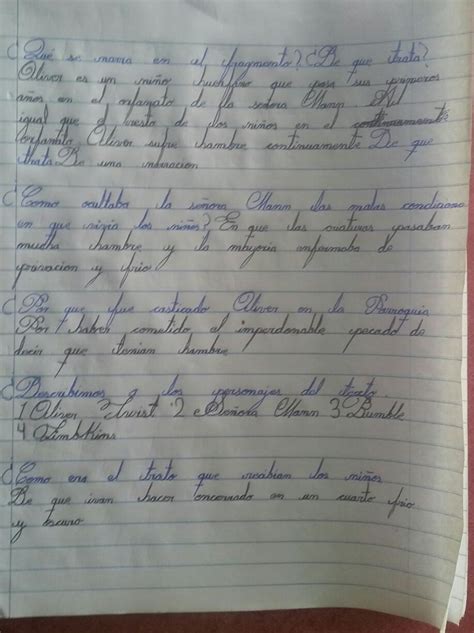 ¿Qué se narra en el fragmento? ¿De que trata?
Oliver es un niño huerfano que pasa sus primeros
años en el orfanato de la señora Mann. Al
igual que el resto de los niños en el continuamente
orfanato Oliver sufre hambre continuamente De que
trata De una narracion
¿Como ocultaba la señora Mann las malas condiciones
en que vivia los niños? En que las criaturas pasaban
mucha hambre y la mayoria enfermaba de
privacion y frio
¿Por que fue casticado Oliver en la Parroquia
Por haber cometido el imperdonable pecado de
decir que tenian hambre
¿Describimos a los personajes del texto.
1 Oliver Twist 2 Señora Mann 3 Bumble
4 Limbkins
¿Como era el trato que resibian los niños
De que ivan hacer encerrado en un cuarto frio
y oscuro